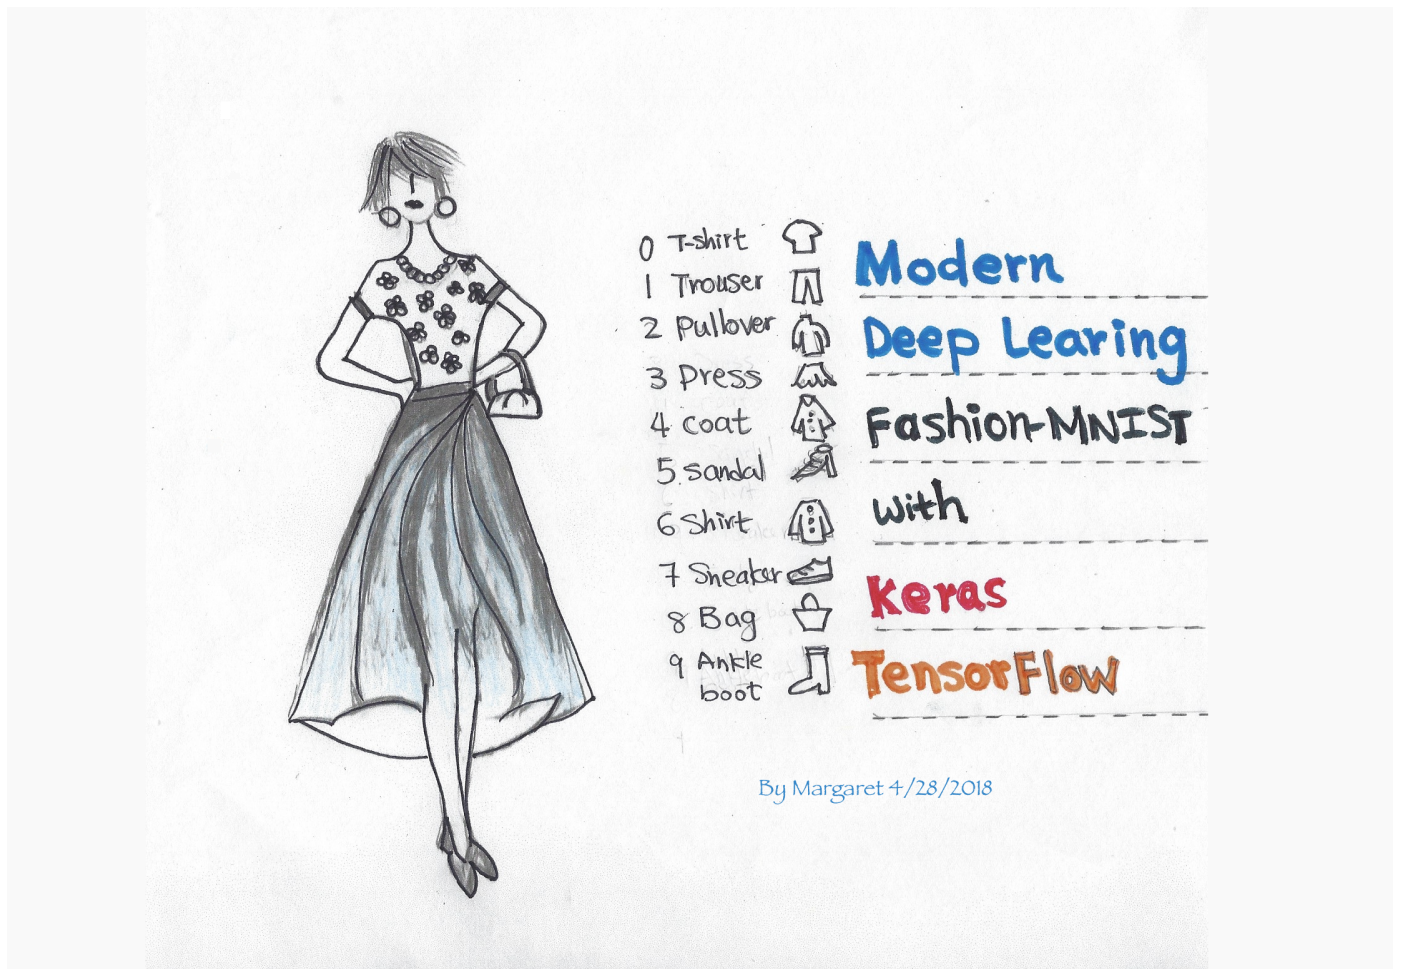 0 T-shirt
1 Trouser
2 Pullover
3 Dress
4 coat
5 sandal
6 Shirt
7 Sneaker
8 Bag
9 Ankle
boot
Modern
Deep Learing
Fashion-MNIST
with
Keras
TensorFlow
By Margaret 4/28/2018